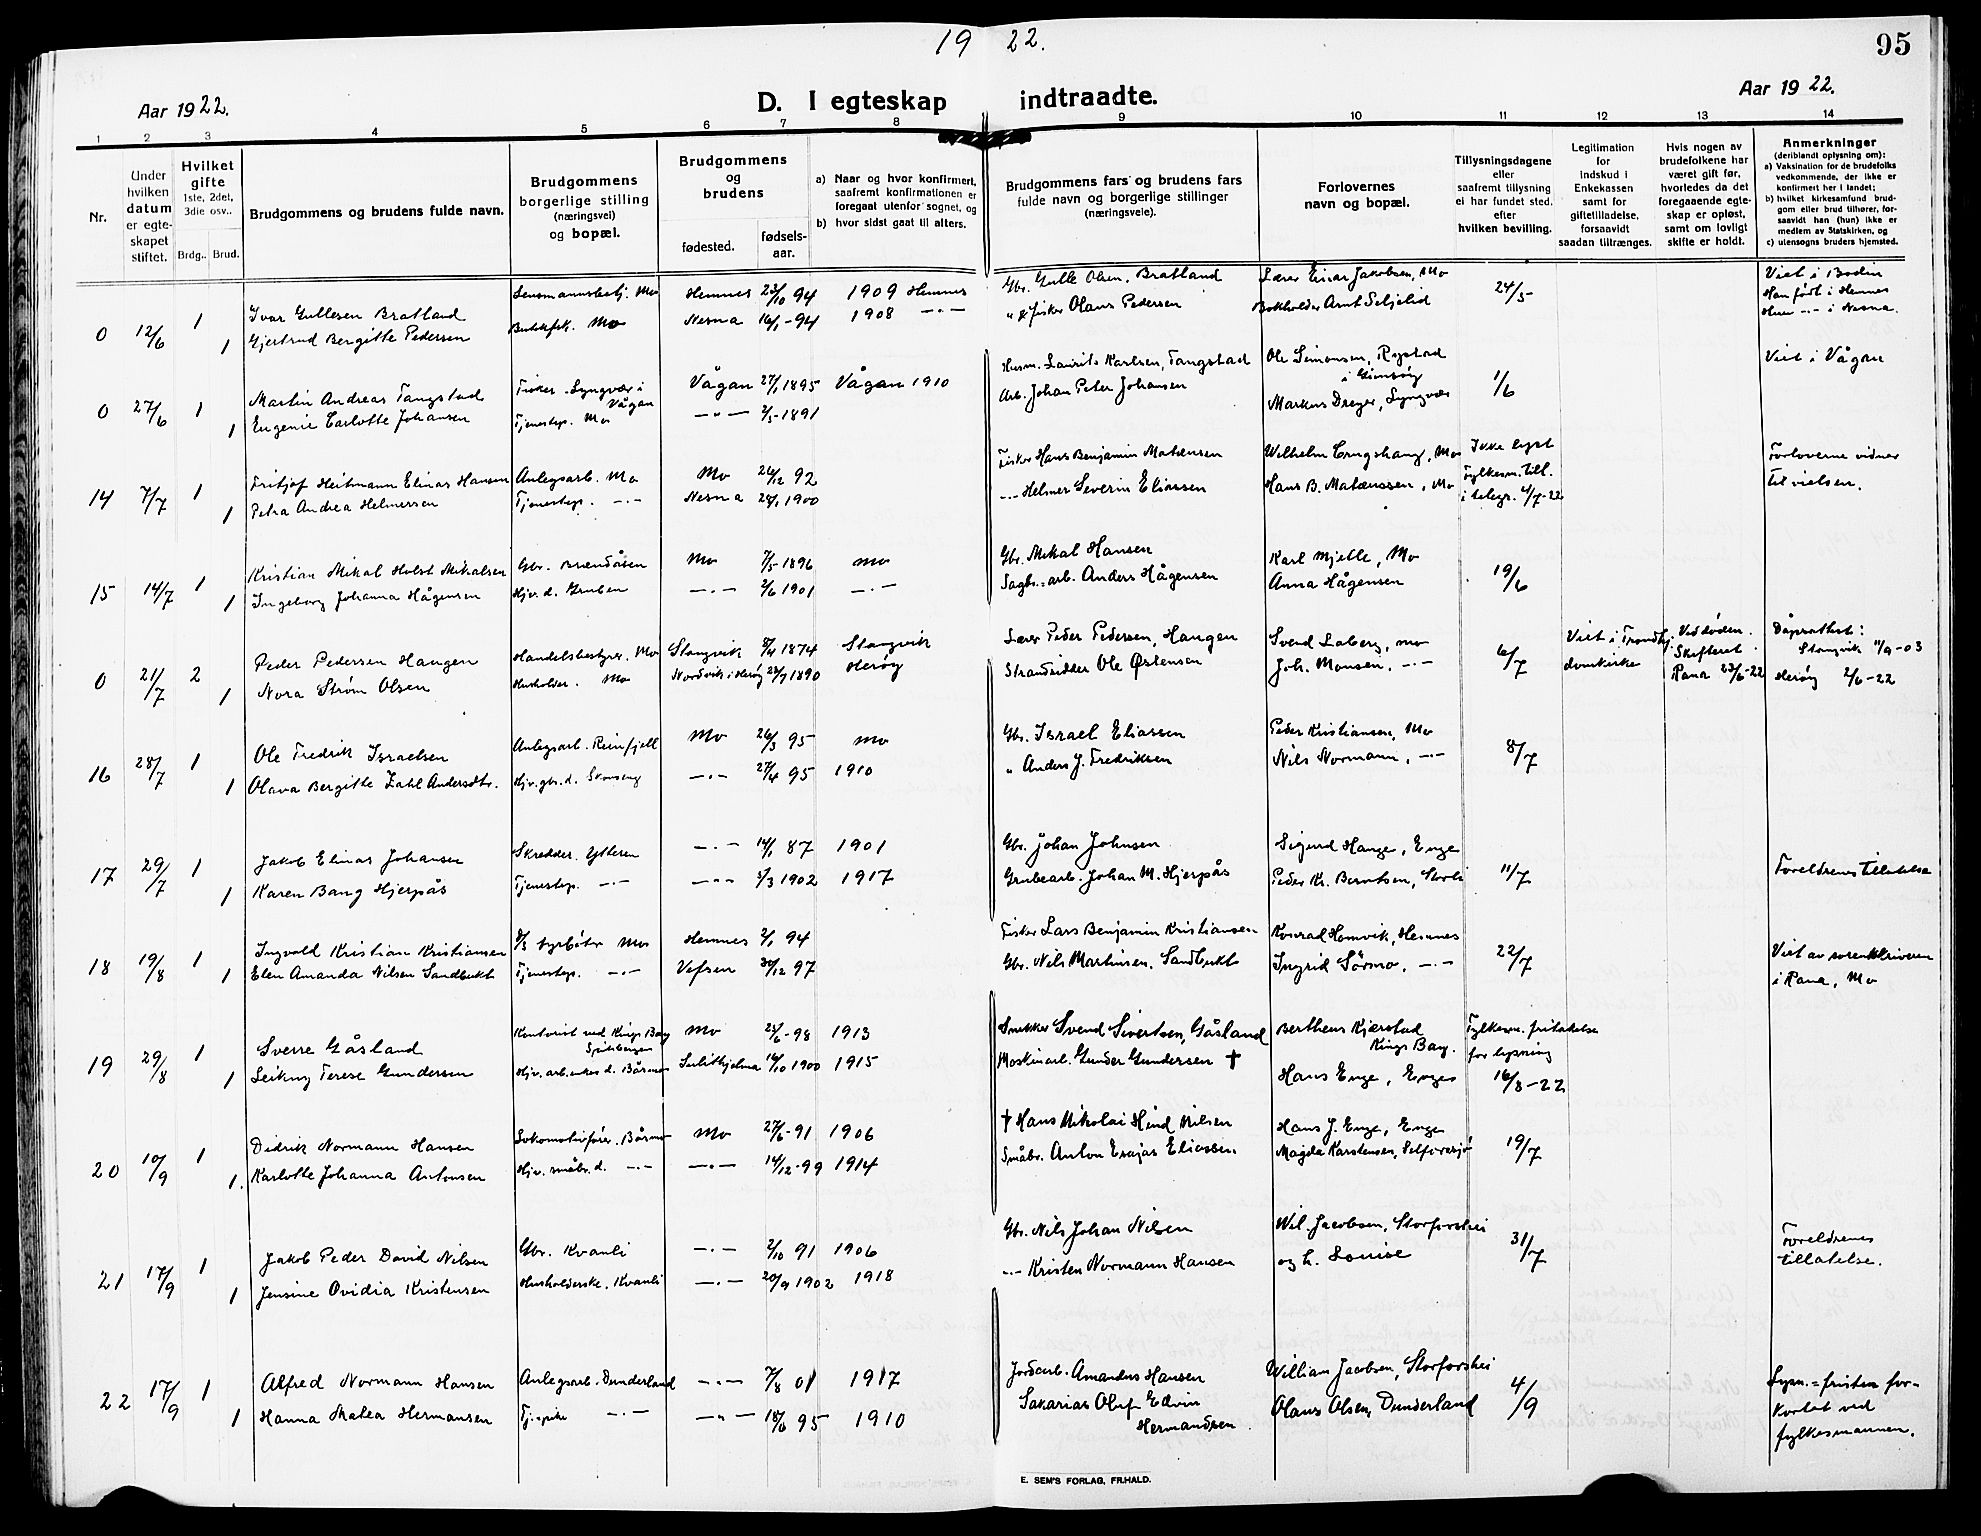 19 22.
95
Aar 1922.
D. I egteskap indtraadte.
Aar 1922.
1 2 3 4 5 6 7 8 9 10 11 12 13 14
Nr.
Under
hvilken
datum
er egte-
skapet
stiftet.
Hvilket
gifte
1ste, 2det,
3die osv..
Brdg.. Brud.
Brudgommens og brudens fulde navn.
Brudgommens
borgerlige stilling
(næringsvei)
og bopæl.
Brudgommens
og
brudens
fødested.
fødsels-
aar.
a) Naar og hvor konfirmert,
saafremt konfirmationen er
foregaat utenfor sognet, og
b) hvor sidst gaat til alters.
Brudgommens fars og brudens fars
fulde navn og borgerlige stillinger
(næringsveie).
Forlovernes
navn og bopæl.
Tillysningsdagene
eller
saafremt tillysning
ei har fundet sted,
efter
hvilken bevilling.
Legitimation
for
indskud i
Enkekassen
samt for
giftetilladelse,
forsaavidt
saadan tiltrænges.
Hvis nogen av
brudefolkene har
været gift før,
hvorledes da det
foregaaende egte-
skap er opløst,
samt om lovligt
skifte er holdt.
Anmerkninger
(deriblandt oplysning om):
a) Vaksination for de brudefolks
vedkommende, der ikke er
konfirmert her i landet;
b) hvilket kirkesamfund brud-
gom eller brud tilhører, for-
saavidt han (hun) ikke er
medlem av Statskirken, og
c) utensogns bruders hjemsted.
0 12/6 1 Ivar Gullesen Bratland Lensmannsbetj. Mo Hemnes 23/10 94 1909 Hemnes Gbr. Gulle Olsen, Bratland Lærer Einar Jakobsen, Mo 24/5 Viet i Bodin
Han født i Hemnes
1 Gjertrud Bergitte Pedersen Butekfsk. Mo Nesna 16/1-94 1908 -"- " & fisker Olaus Pedersen Bokholder Arnt Seljelid Hun -"- i Nesna.
0 27/6 1 Martin Andreas Tangstad Fisker. Lyngvær i Vågan Vågan 27/1 1895 Vågan 1910 Husm. Laurits Karlsen, Tangstad Ole Simonsen, Rystad i Gimsøy 1/6 Viet i Vågan
1 Eugenie Carlotte Johansen Tjenestep. Mo -"- 2/5-1891 Arb. Johan Peter Johansen Markus Dreyer, Lyngvær
14 7/7 1 Fritjof Heitmann Elinas Hansen Anlegsarb. Mo Mo 26/12 92 Fisker Hans Benjamin Matæusen Wilhelm Engshaug, Mo Ikke lyst Forloverne vidner
1 Petra Andrea Helmersen Tjenestep. -"- Nesna 28/1 1900 -"- Helmer Severin Eliassen Hans B. Matæussen, Mo Fylkesm. till. i telegr. 4/7-22 til vielsen.
15 14/7 1 Kristian Mikal Holst Mikalsen Gbr. Brændåsen Mo 7/5 1896 Mo Gbr. Mikal Hansen Karl Mjelle, Mo 19/6
1 Ingeborg Johanna Hågensen Hjv. d. Gruben -"- 2/6 1901 -"- Sagbr.=arb. Anders Hågensen Anna Hågensen
0 21/7 2 Peder Pedersen Haugen Handelsbestyrer. Mo Stangvik 8/4 1874 Stangvik Lærer Peder Pedersen, Haugen Svend Laberg, Mo 6/7 Viet i Trondhj. Ved døden. Dåpsattest:
Skifteret Stangvik 11/9-03
1 Nora Strøm Olsen Husholder. Mo Nordvik i Herøy 24/7 1890 Herøy Strandsidder Ole Østensen Joh. Monsen, -"- domkirke Rana 23/6-22 Herøy 2/6-22
16 28/7 1 Ole Fredrik Israelsen Anlegsarb. Reinfjell Mo 26/3 95 Mo Gbr. Israel Eliassen Peder Kristiansen, Mo 8/7
1 Olava Bergitte Zahl Andersdtr. Hjv. gbr. d. Skonseng -"- 27/4 95 1910 " Anders J. Fredriksen Nils Normann, -"-
17 29/7 1 Jakob Elinas Johansen Skredder. Ytteren -"- 14/1 87 1901 Gbr. Johan Johnsen Sigurd Hauge, Enge 11/7 Foreldrenes tillatelse
1 Karen Bang Hjerpås Tjenestep. -"- -"- 3/3 1902 1917 Grubearb. Johan M. Hjerpås Peder Kr. Berntsen, Storli
18 19/8 1 Ingvald Kristian Kristiansen Mo Hemnes 2/1 94 Fisker Lars Benjamin Kristiansen Konrad Homvik, Hemnes 22/7 Viet av sorenskriveren
1 Elen Amanda Nilsen Sandbukt Tjenestep. -"- Vefsen 30/12 97 Gbr. Nils Martinsen, Sandbukt Ingrid Sörmo, -"- i Rana, Mo
19 29/8 1 Sverre Gåsland Kontorist ved Kings Bay Spitsbergen Mo 23/6-98 1913 Snekker Svend Sivertsen, Gåsland Bertheus Kjærstad Kings Bay. Fylkesm. fritakelse
for lysning
1 Leikny Terese Gundersen Hjv. arb. enkes d. Båsmo Sulithjelma 16/10 1900 1915 Maskinarb. Gunder Gundersen † Hans Enge, Enge 16/8-22
20 10/9 1 Didrik Normann Hansen Lokomotivfører. Båsmo Mo 27/6-91 1906 † Hans Nikolai Hind Nilsen Hans J. Enge, Enge 19/7
1. Karlotte Johanna Antonsen Hjv. småbr. d. -"- -"- 14/12-99 1914 Småbr. Anton Esajas Eliassen Magda Karstensen, Selforssjø
21 17/9 1 Jakob Peder David Nilsen Gbr. Kvanli -"- 2/10 91 1906 Gbr. Nils Johan Nilsen Wil. Jacobsen, Storforshei 31/7 Foreldrenes
1 Jensine Ovidia Kristensen Husholderske. Kvanli -"- 20/9 1902 1918 -"- Kristen Normann Hansen og h. Louise tillatelse.
22 17/9 1 Alfred Normann Hansen Anlegsarb. Dunderland -"- 7/8 01 1917 Jordarb. Amandus Hansen William Jacobsen, Storforshei 4/9 Lysn.=fristen for-
kortet ved
1 Hanna Malea Hermansen Tj.pike -"- -"- 18/6 95 1910 Sakarias Oluf Edvin Hermandsen Olaus Olsen, Dunderland fylkesmannen.
E. SEM'S FORLAG, FR.HALD.